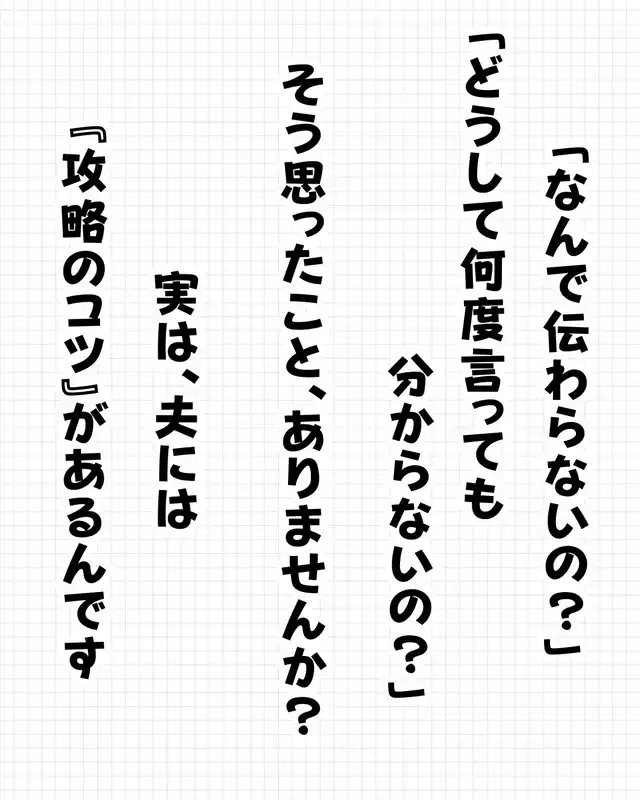 「なんで伝わらないの？」
「どうして何度言っても
分からないの？」
そう思ったこと、ありませんか？
実は、夫には
『攻略のコツ』があるんです